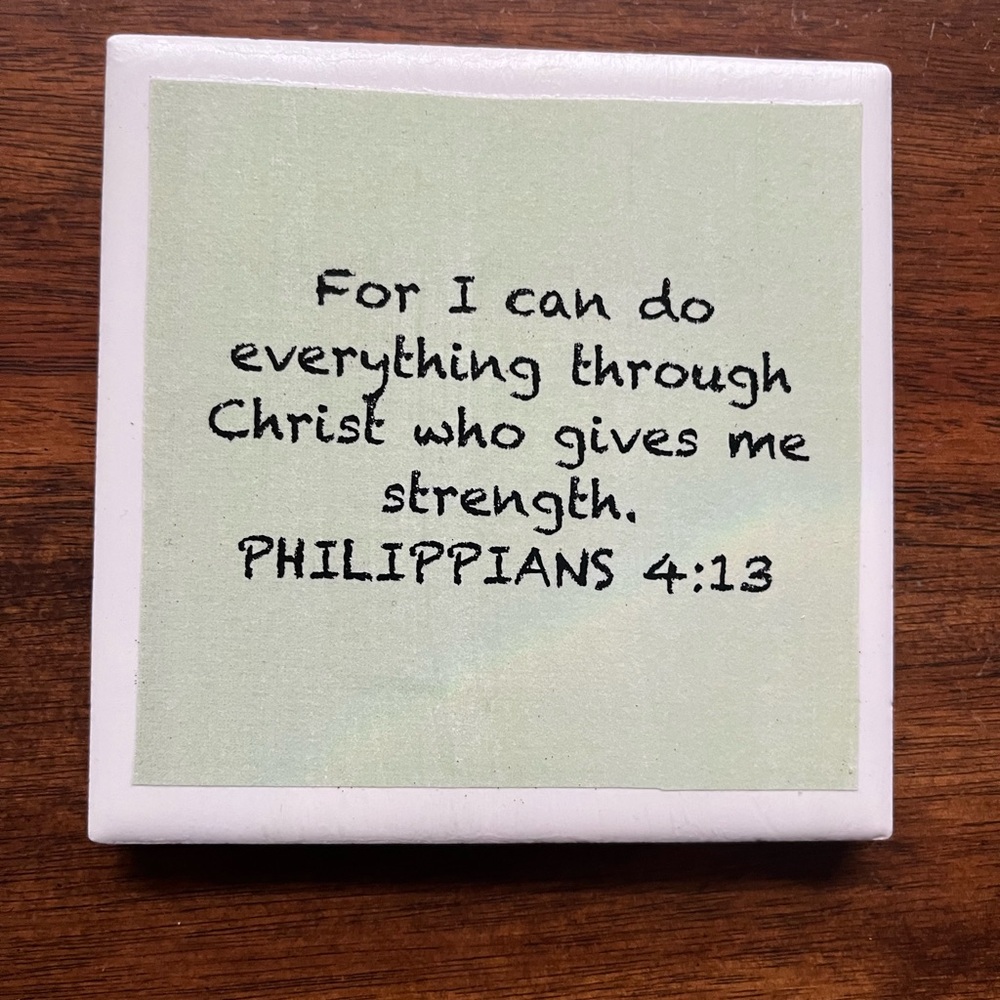 For I can do
everything through
Christ who gives me
strength.
PHILIPPIANS 4:13